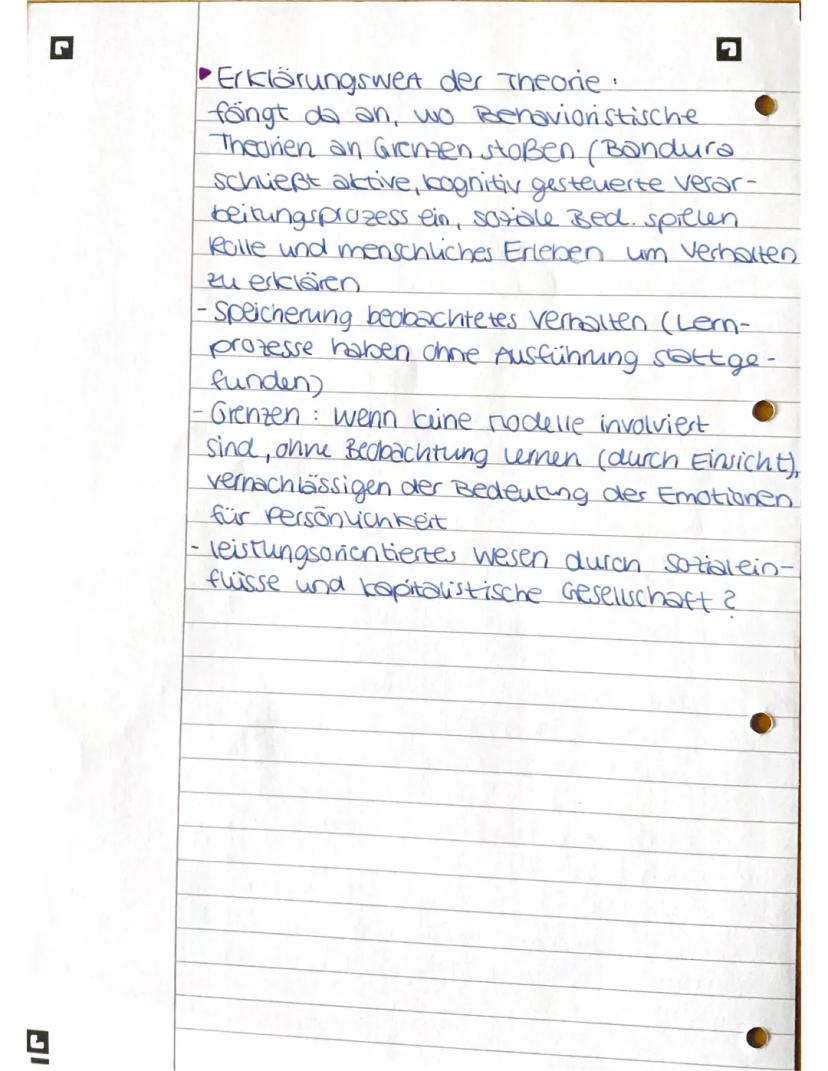 Erklärungswert der Theorie:
fängt da an, wo Behavioristische
Theorien an Grenzen stoßen (Bandura
schließt aktive, kognitiv gesteuerte Verar-
beitungsprozess ein, soziale Bed. spielen
Rolle und menschliches Erleben um Verhalten
zu erklären
- Speicherung beobachtetes Verhalten (Lern-
prozesse haben ohne Ausführung stattge-
funden)
- Grenzen: wenn keine Modelle involviert
sind, ohne Beobachtung lernen (durch Einsicht),
vernachlässigen der Bedeutung des Emotionen
für Persönlichkeit
- leistungsorientiertes Wesen durch Sozialein-
flüsse und kapitalistische Gesellschaft?